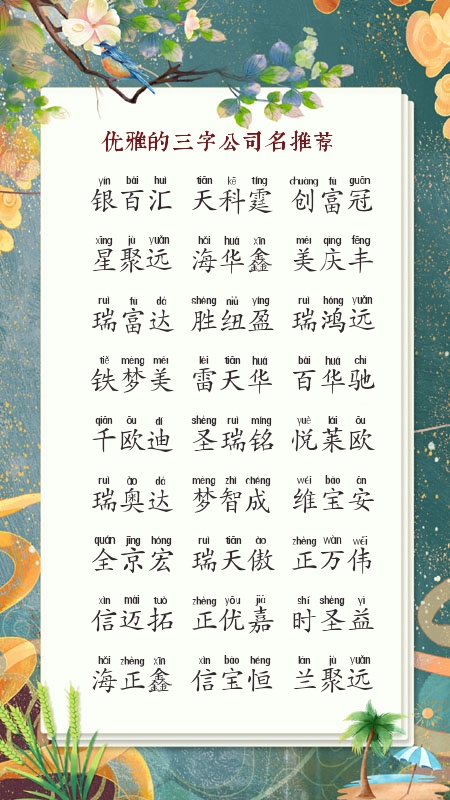 优雅的三字公司名推荐
yín bǎi huì tiān kē tíng chuàng fù guān
银百汇 天科霆 创富冠
xīng jù yuǎn hǎi huá xīn měi qìng fēng
星聚远 海华鑫 美庆丰
ruì fù dá shèng niǔ yíng ruì hóng yuǎn
瑞富达 胜纽盈 瑞鸿远
tiě mèng měi léi tiān huá bǎi huá chí
铁梦美 雷天华 百华驰
qiān ōu dí shèng ruì míng yuè lái ōu
千欧迪 圣瑞铭 悦莱欧
ruì ào dá mèng zhì chéng wéi bǎo ān
瑞奥达 梦智成 维宝安
quán jīng hóng ruì tiān ào zhèng wàn wěi
全京宏 瑞天傲 正万伟
xìn mài tuò zhèng yōu jiā shí shèng yì
信迈拓 正优嘉 时圣益
hǎi zhèng xīn xìn bǎo héng lán jù yuǎn
海正鑫 信宝恒 兰聚远